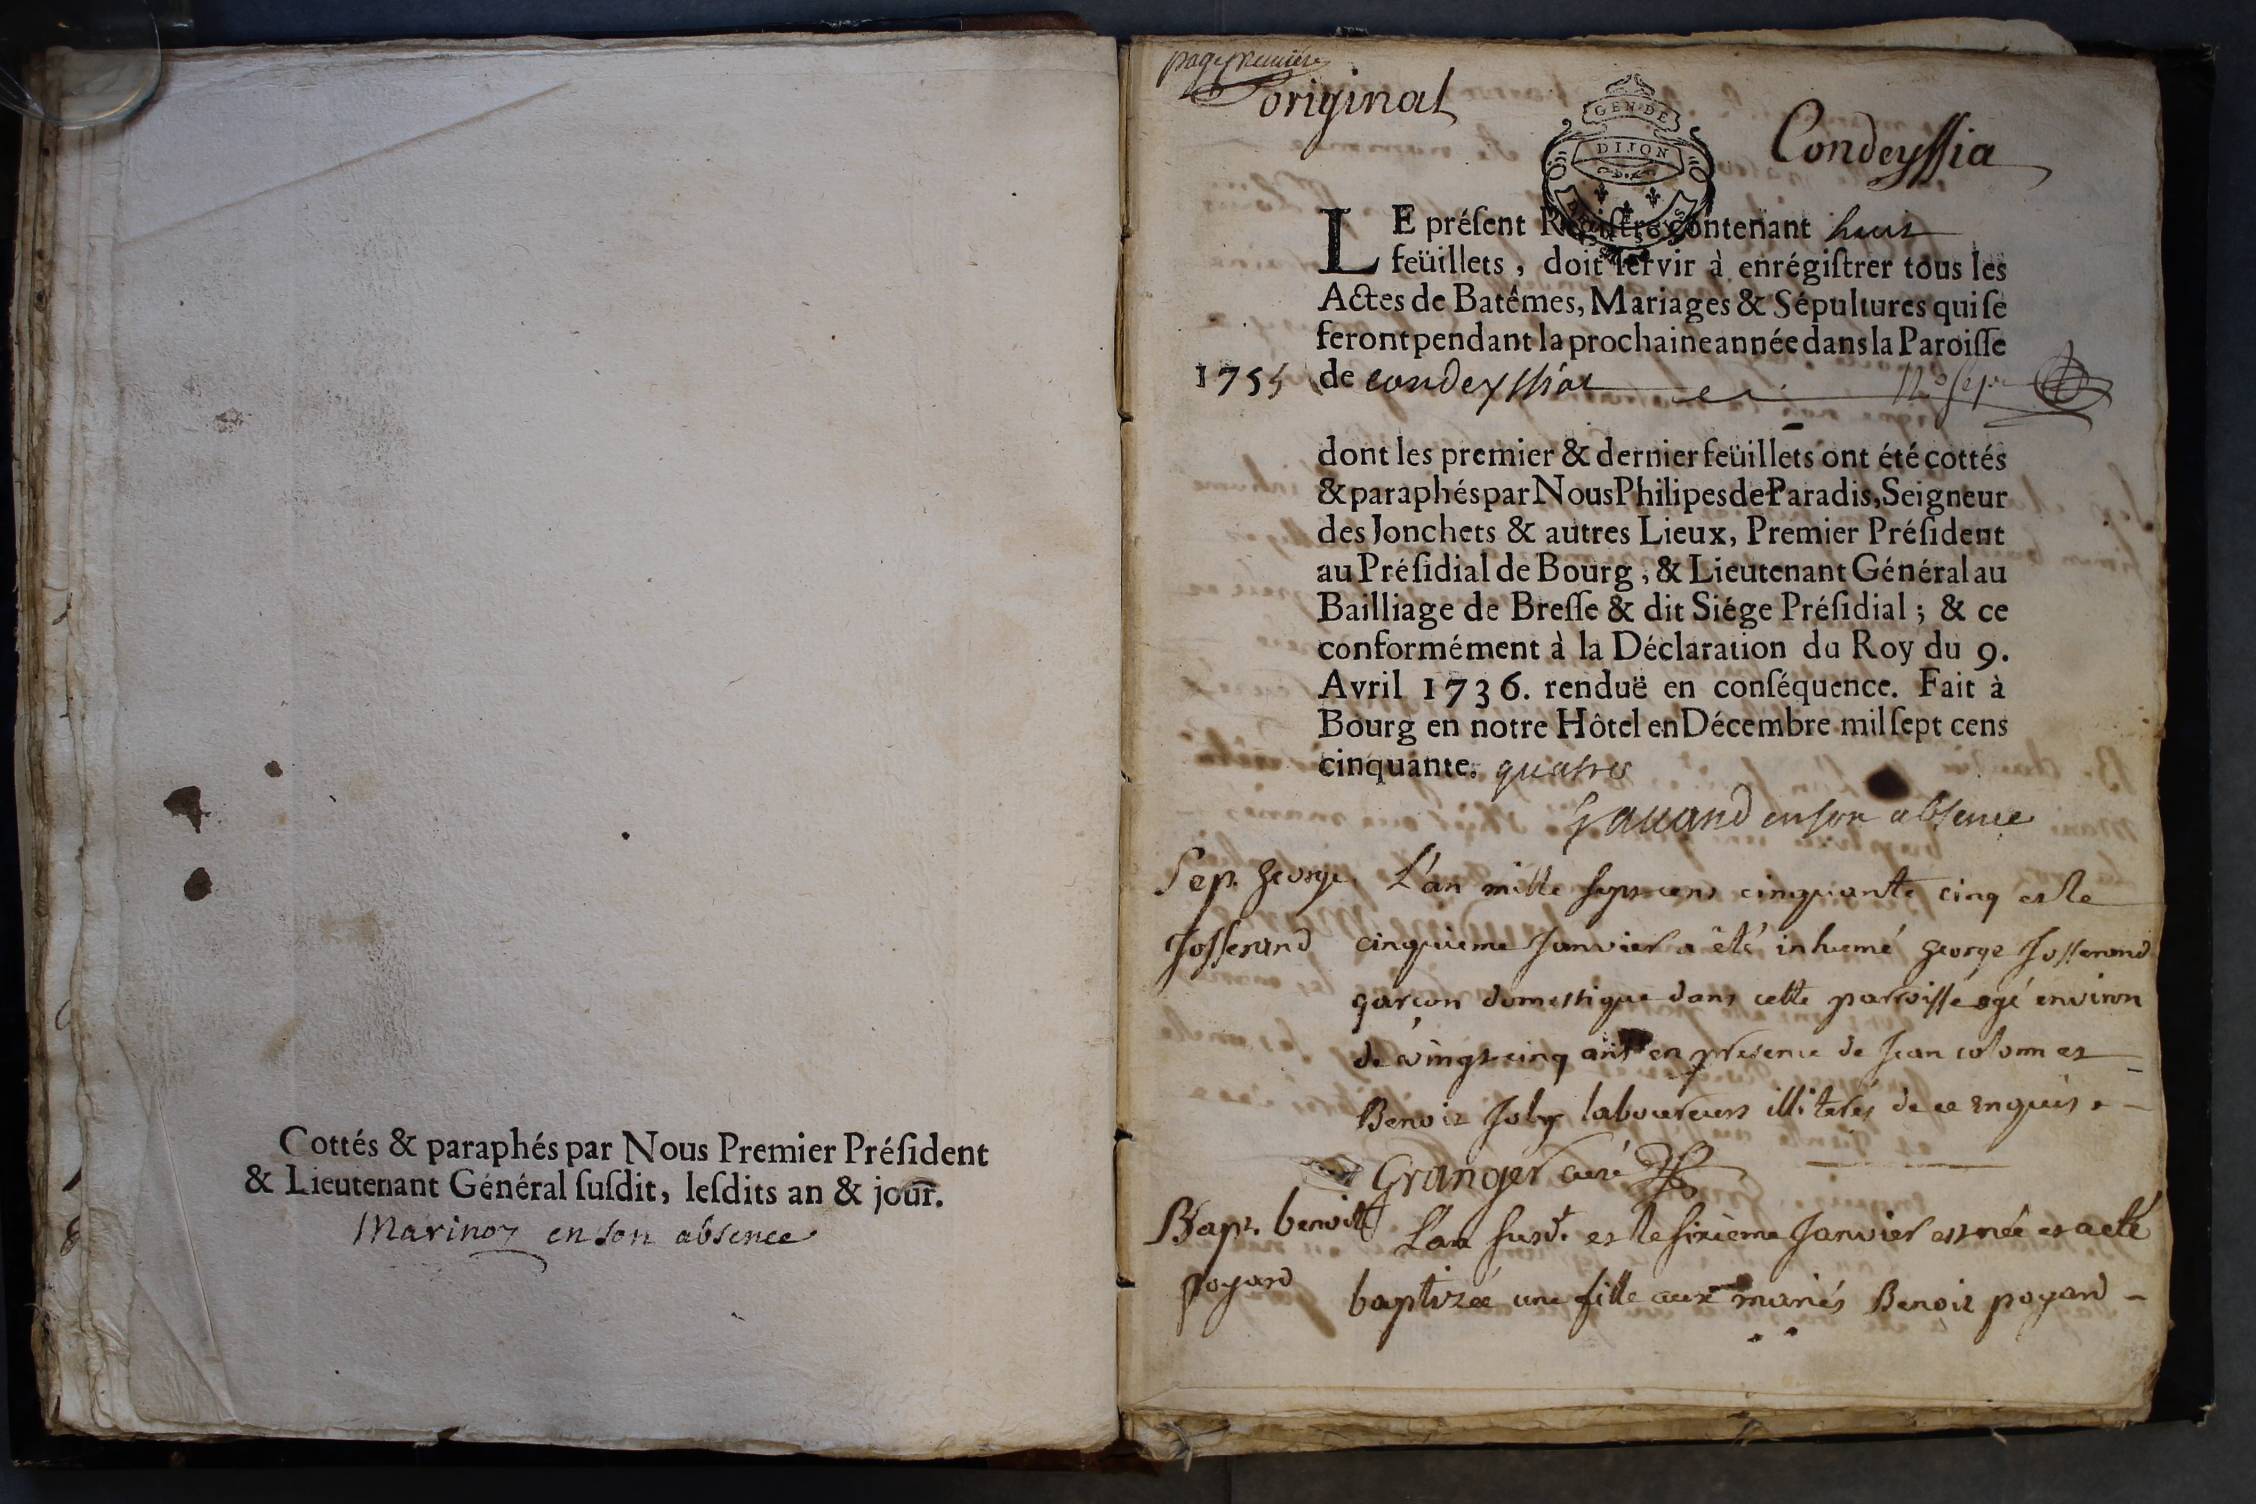 Cottés & paraphés par Nous Premier Préſident
& Lieutenant Général ſuſdit, leſdits an & jour.
Marinoz en son absence
page premiere
original
GEN DE
DIJON
Condeyſſia
LE préſent Regiſtre contenant huit
feüillets, doit ſervir à enrégiſtrer tous les
Actes de Batêmes, Mariages & Sépultures qui ſe
feront pendant la prochaine année dans la Paroiſſe
1755 de condeyssiat
dont les premier & dernier feüillets ont été cottés
& paraphés par Nous Philipes de Paradis, Seigneur
des Jonchets & autres Lieux, Premier Préſident
au Préſidial de Bourg, & Lieutenant Général au
Bailliage de Breſſe & dit Siége Préſidial; & ce
conformément à la Déclaration du Roy du 9.
Avril 1736. renduë en conſéquence. Fait à
Bourg en notre Hôtel en Décembre mil ſept cens
cinquante. quatre
en son absence
Sep. George
Josserand
L'an mille sept cens cinquante cinq et le
cinquieme Janvier a été inhumé George Josserand
garçon domestique dans cette parroisse agé environ
de vingt cinq ans en presence de Jean colomn et
Benoit Joly laboureurs illiterés de ce enquis.
Granger curé
Bap. benoitt
poyard
L'an susd. et le sixieme Janvier est née et a eté
baptizée une fille aux mariés Benoit poyard